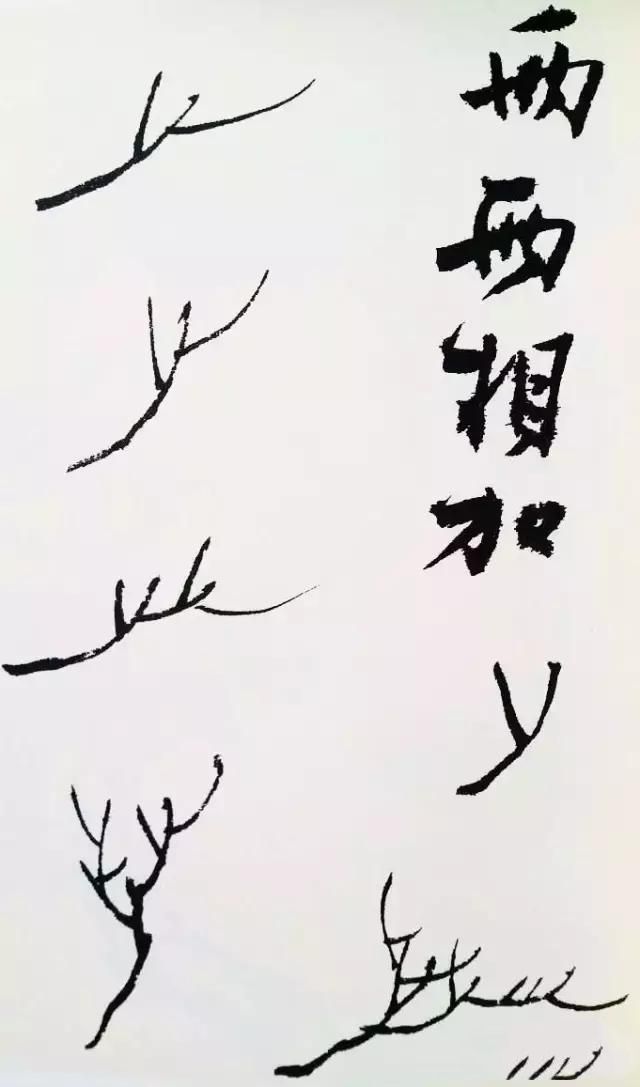 两两相加